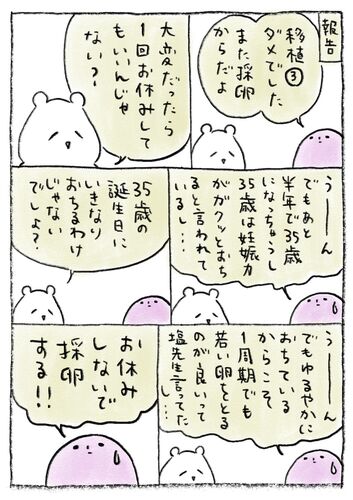 報告
移植③
ダメでした
また採卵
からだよ
大変だったら
1回お休みして
もいいんじゃ
ない？
うーーん
でもあと
半年で35歳
になっちゃうし
35歳は妊娠力
がガクッとおち
ると言われて
いるし…
35歳の
誕生日に
いきなり
おちるわけ
じゃない
でしょ？
うーーん
でもゆるやかに
おちている
からこそ
1周期でも
若い卵をとる
のが良いって
塩先生言ってた
し…
お休み
しないで
採卵
する!!